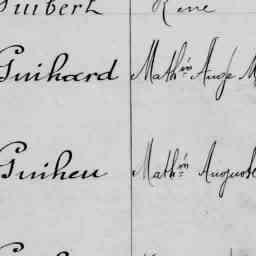 Guibert René
Guihard Mathin Auge M
Guiheu Mathin Auguste